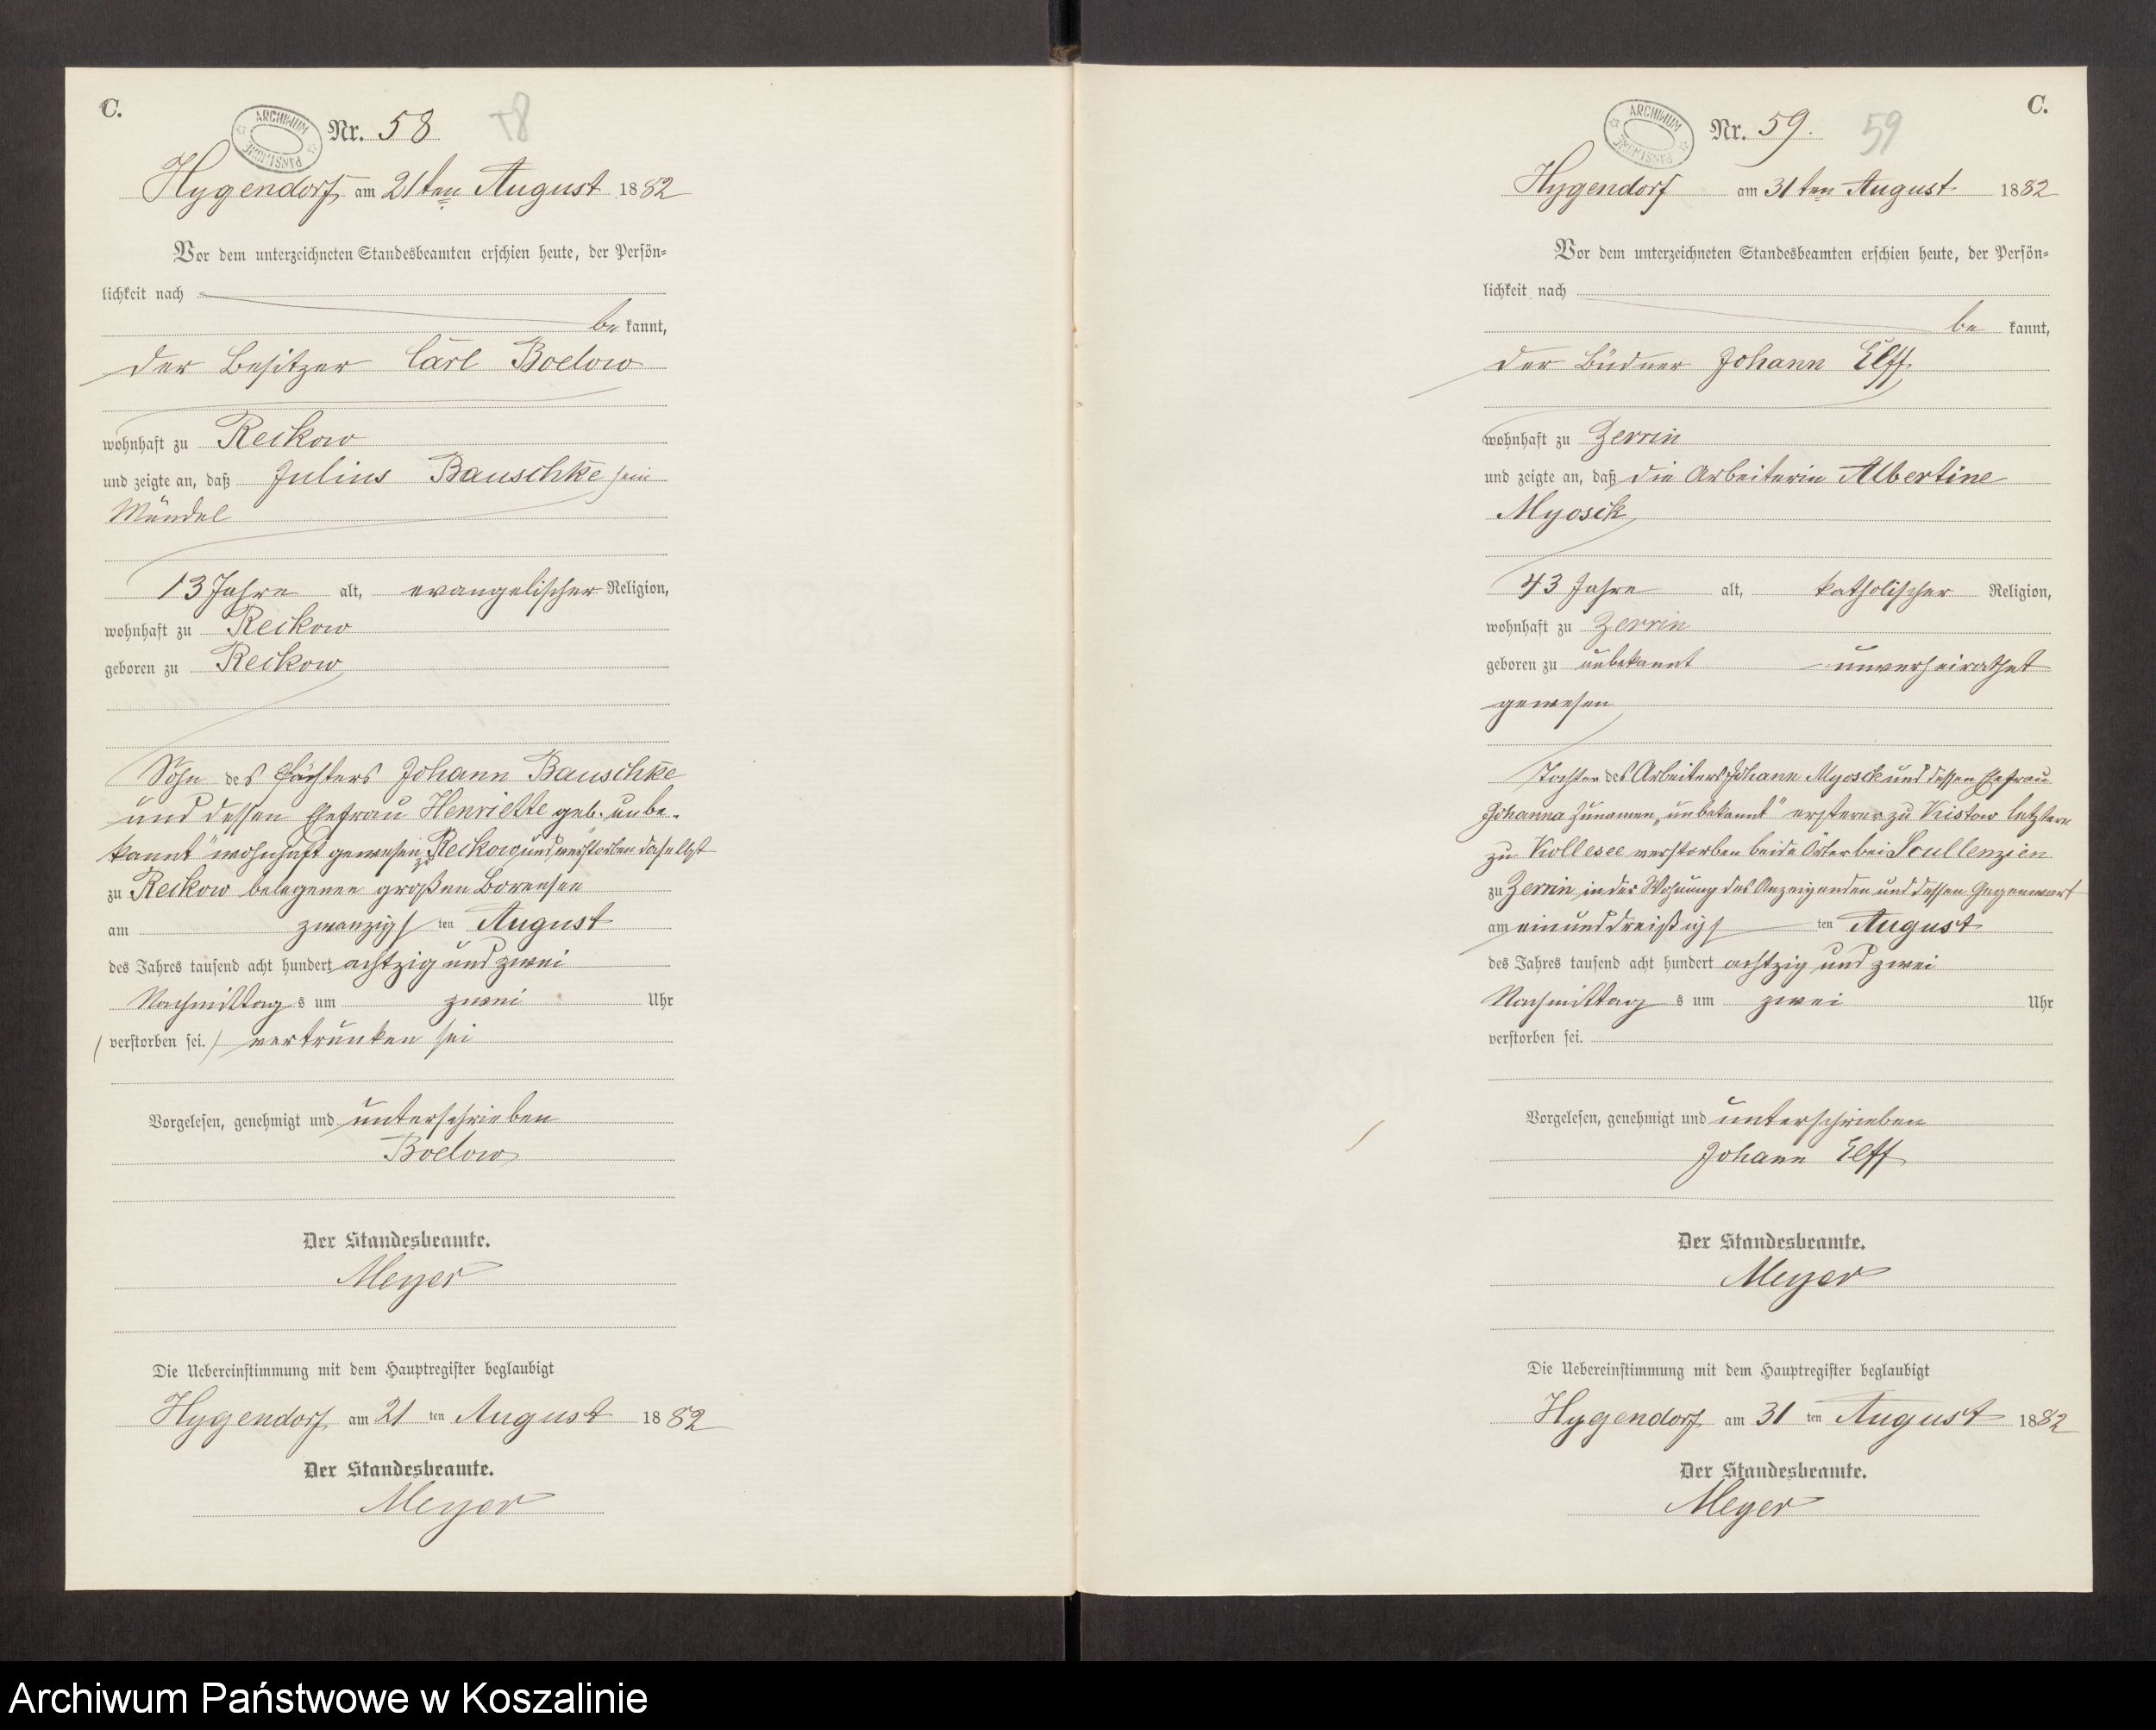 C.
ARCHIWUM PAŃSTWOWE
Nr. 58
58
Hygendorf am 21ten August 1882
Vor dem unterzeichneten Standesbeamten erschien heute, der Persön-
lichkeit nach
be kannt,
der Besitzer Carl Boelow
wohnhaft zu Reckow
und zeigte an, daß Julius Bauschke sein
Mündel
13 Jahre alt, evangelischer Religion,
wohnhaft zu Reckow
geboren zu Reckow
Sohn des Pächters Johann Bauschke
und dessen Ehefrau Henriette geb. „unbe-
kannt" wohnhaft gewesen zu Reckow und verstorben daselbst
zu Reckow belegenen großen Borrensee
am zwanzigsten August
des Jahres tausend acht hundert achtzig und zwei
Nachmittags um zwei Uhr
(verstorben sei.) vertrunken sei
Vorgelesen, genehmigt und unterschrieben
Boelow
Der Standesbeamte.
Meyer
Die Uebereinstimmung mit dem Hauptregister beglaubigt
Hygendorf am 21 ten August 1882
Der Standesbeamte.
Meyer
C.
ARCHIWUM PAŃSTWOWE
Nr. 59.
59
Hygendorf am 31ten August 1882
Vor dem unterzeichneten Standesbeamten erschien heute, der Persön-
lichkeit nach
be kannt,
der Büdner Johann Elff
wohnhaft zu Zerrin
und zeigte an, daß die Arbeiterin Albertine
Myosck
43 Jahre alt, katholischer Religion,
wohnhaft zu Zerrin
geboren zu unbekannt unverheirathet
gewesen
Tochter des Arbeiters Johann Myosck und dessen Ehefrau
Johanna Zunamen „unbekannt" ersterer zu Kistow letztere
zu Kollesee verstorben beide Örter bei Scullenzien
zu Zerrin in der Wohnung des Anzeigenden und dessen Gegenwart
am einunddreißigsten August
des Jahres tausend acht hundert achtzig und zwei
Nachmittags um zwei Uhr
verstorben sei.
Vorgelesen, genehmigt und unterschrieben
Johann Elff
Der Standesbeamte.
Meyer
Die Uebereinstimmung mit dem Hauptregister beglaubigt
Hygendorf am 31 ten August 1882
Der Standesbeamte.
Meyer
Archiwum Państwowe w Koszalinie